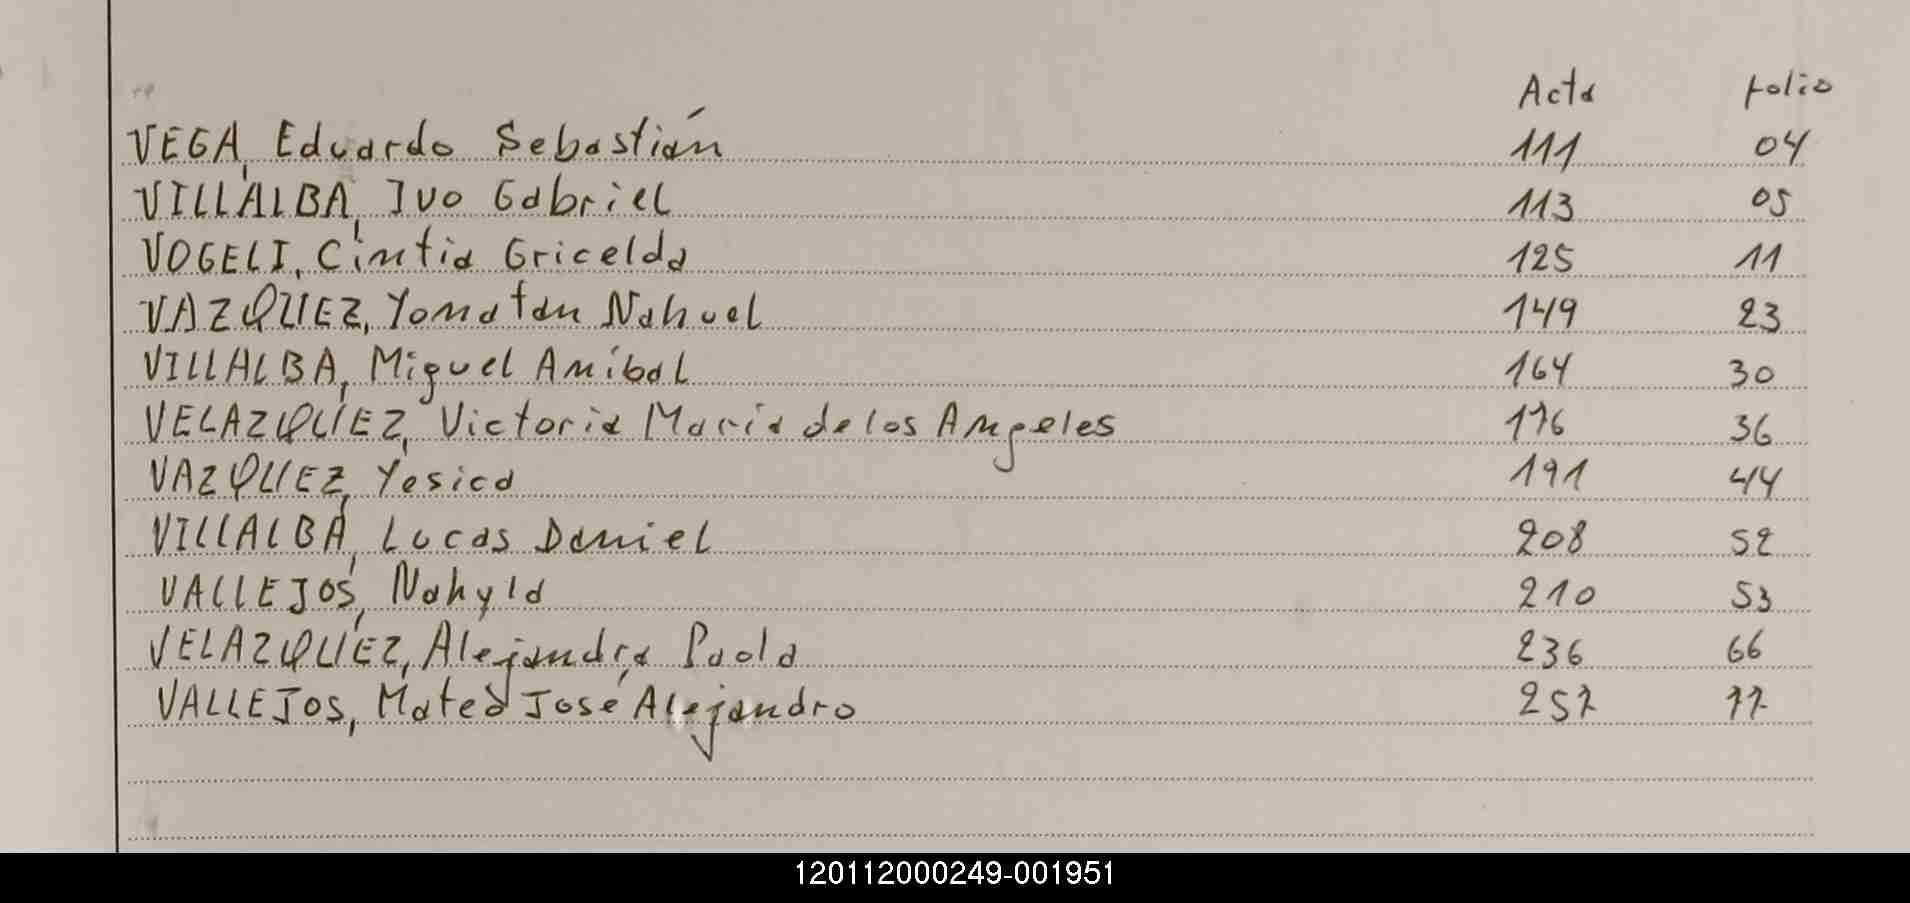 Acta folio
VEGA, Eduardo Sebastián 111 04
VILLALBA, Ivo Gabriel 113 05
VOGELI, Cintia Gricelda 125 11
VAZQUEZ, Yonatan Nahuel 149 23
VILLALBA, Miguel Anibal 164 30
VELAZQUEZ, Victoria Maria de los Angeles 176 36
VAZQUEZ, Yesica 191 44
VILLALBA, Lucas Daniel 208 52
VALLEJOS, Nahyla 210 53
VELAZQUEZ, Alejandra Paola 236 66
VALLEJOS, Mateo José Alejandro 257 77
120112000249-001951